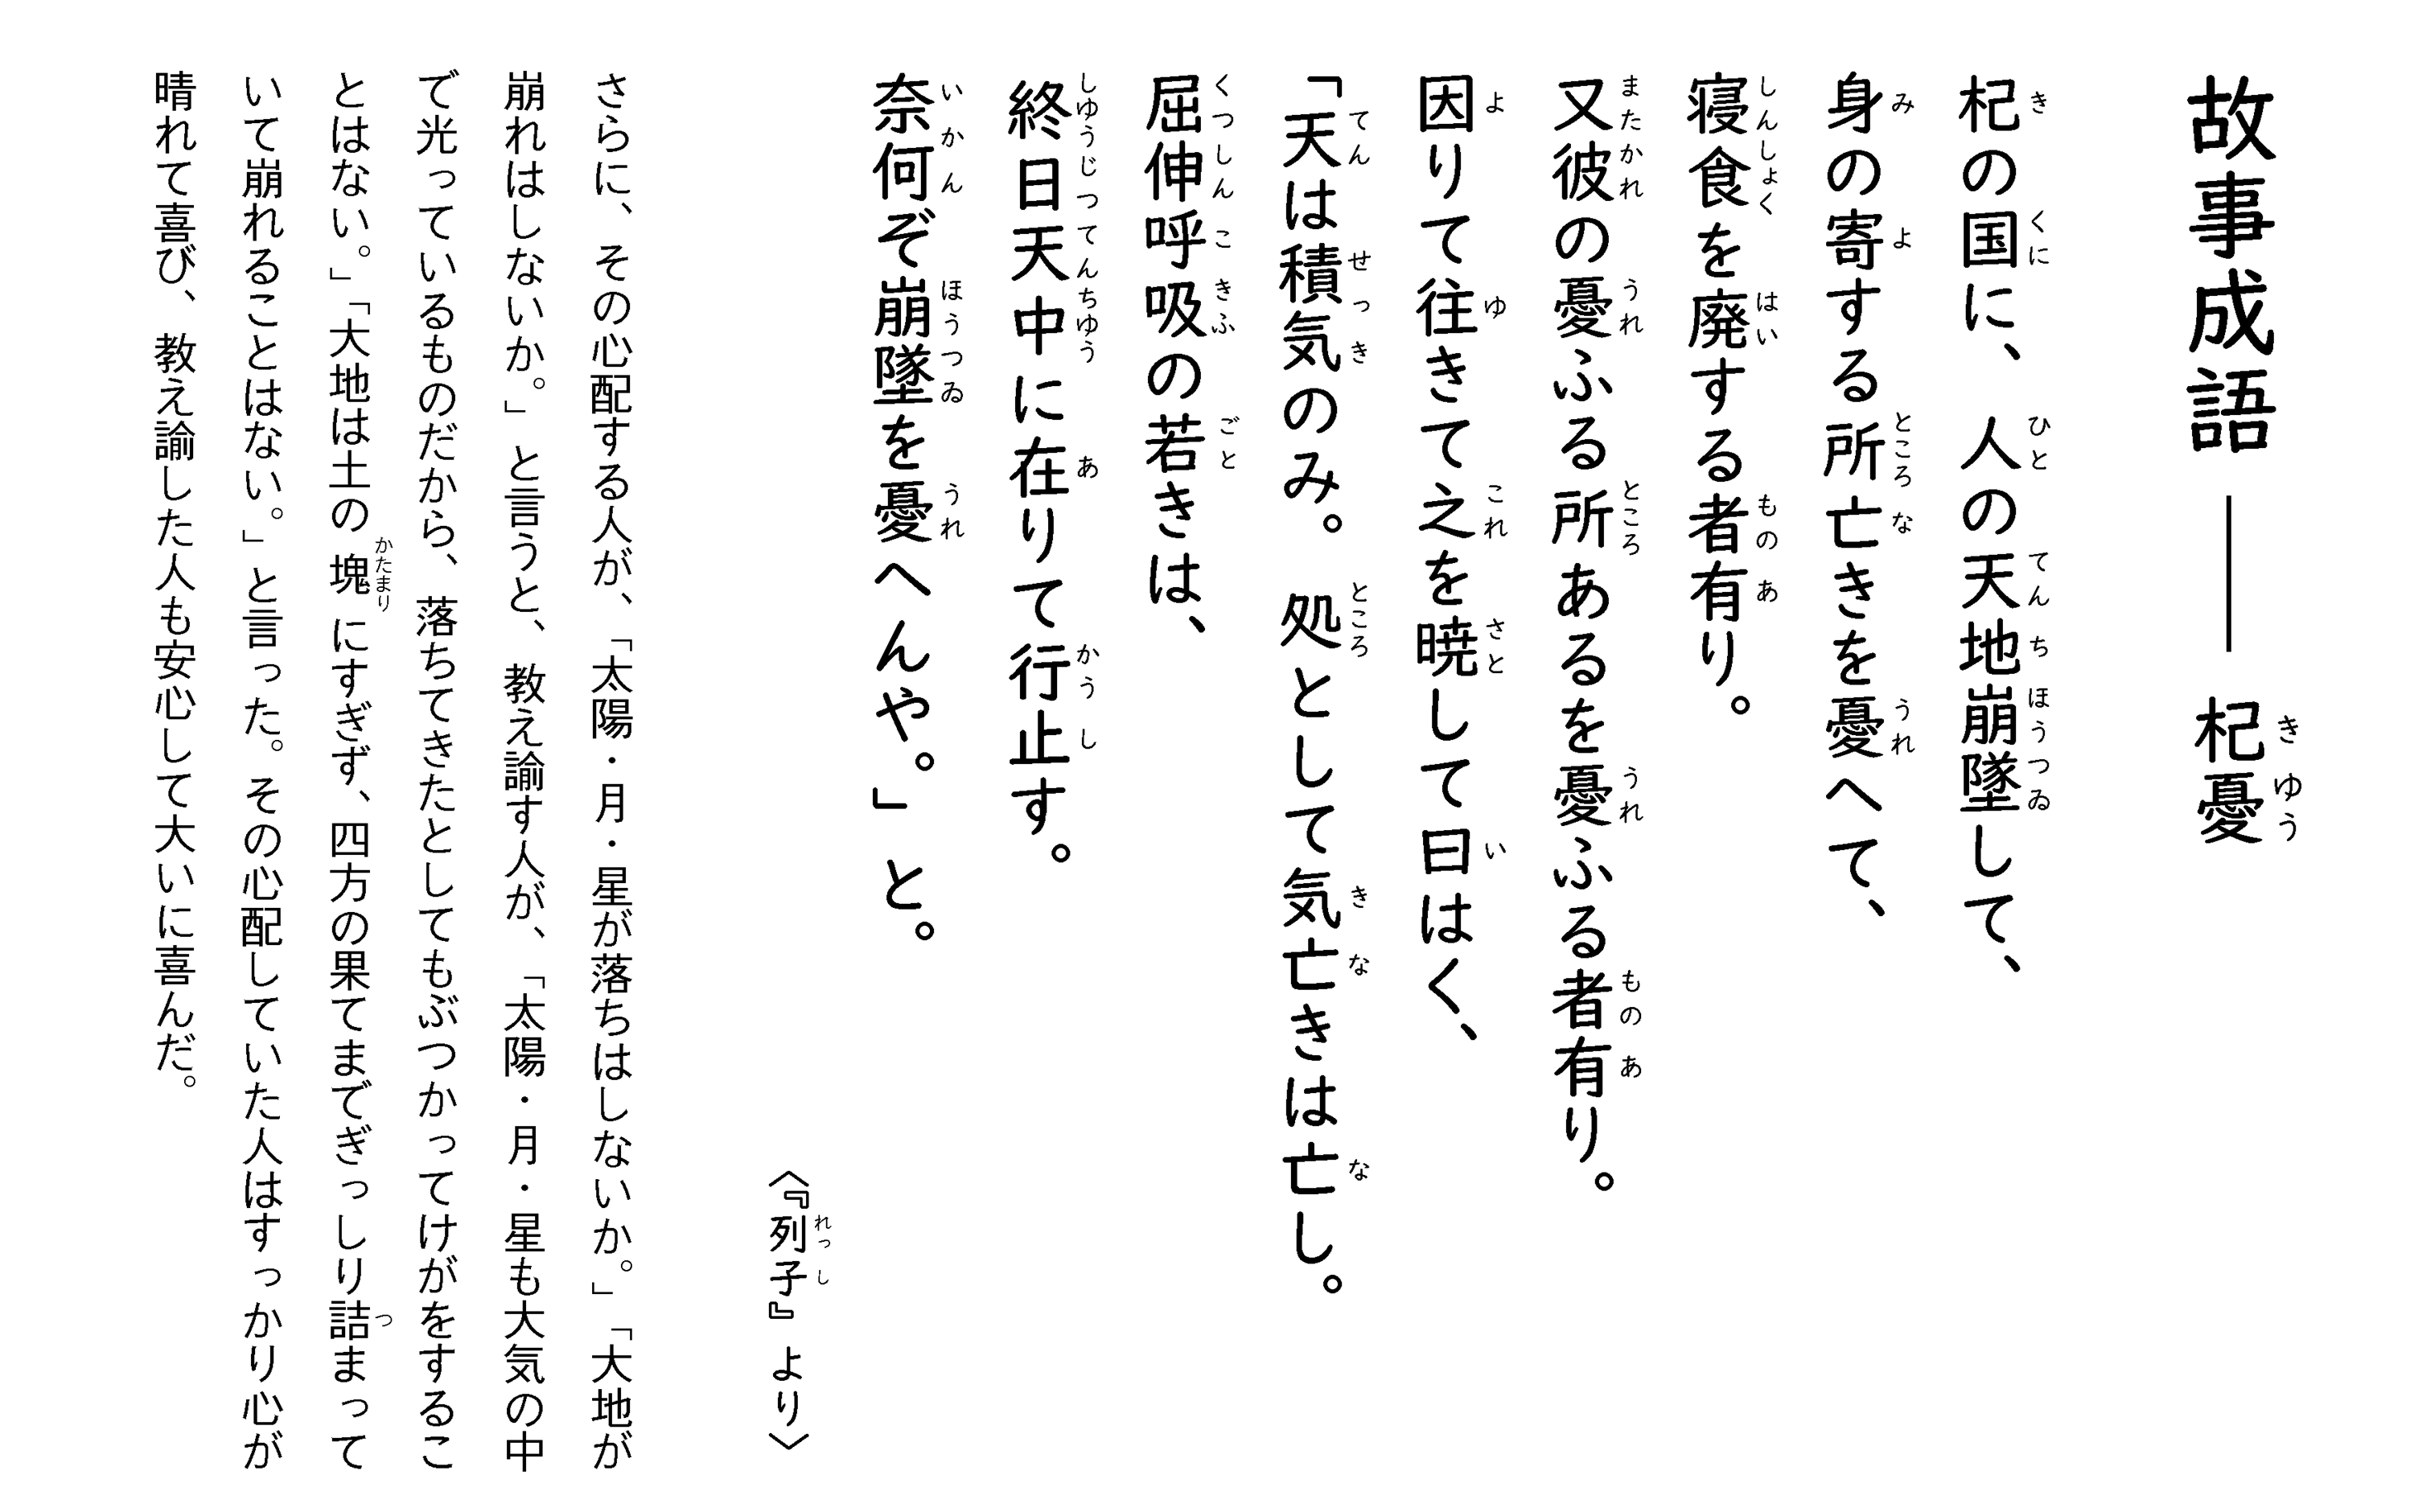 故事成語――杞憂
杞の国に、人の天地崩墜して、
身の寄する所亡きを憂へて、
寝食を廃する者有り。
又彼の憂ふる所あるを憂ふる者有り。
因りて往きて之を暁して曰はく、
「天は積気のみ。処として気亡きは亡し。
屈伸呼吸の若きは、
終日天中に在りて行止す。
奈何ぞ崩墜を憂へんや。」と。
〈『列子』より〉
さらに、その心配する人が、「太陽・月・星が落ちはしないか。」「大地が
崩れはしないか。」と言うと、教え諭す人が、「太陽・月・星も大気の中
で光っているものだから、落ちてきたとしてもぶつかってけがをするこ
とはない。」「大地は土の塊にすぎず、四方の果てまでぎっしり詰まって
いて崩れることはない。」と言った。その心配していた人はすっかり心が
晴れて喜び、教え諭した人も安心して大いに喜んだ。